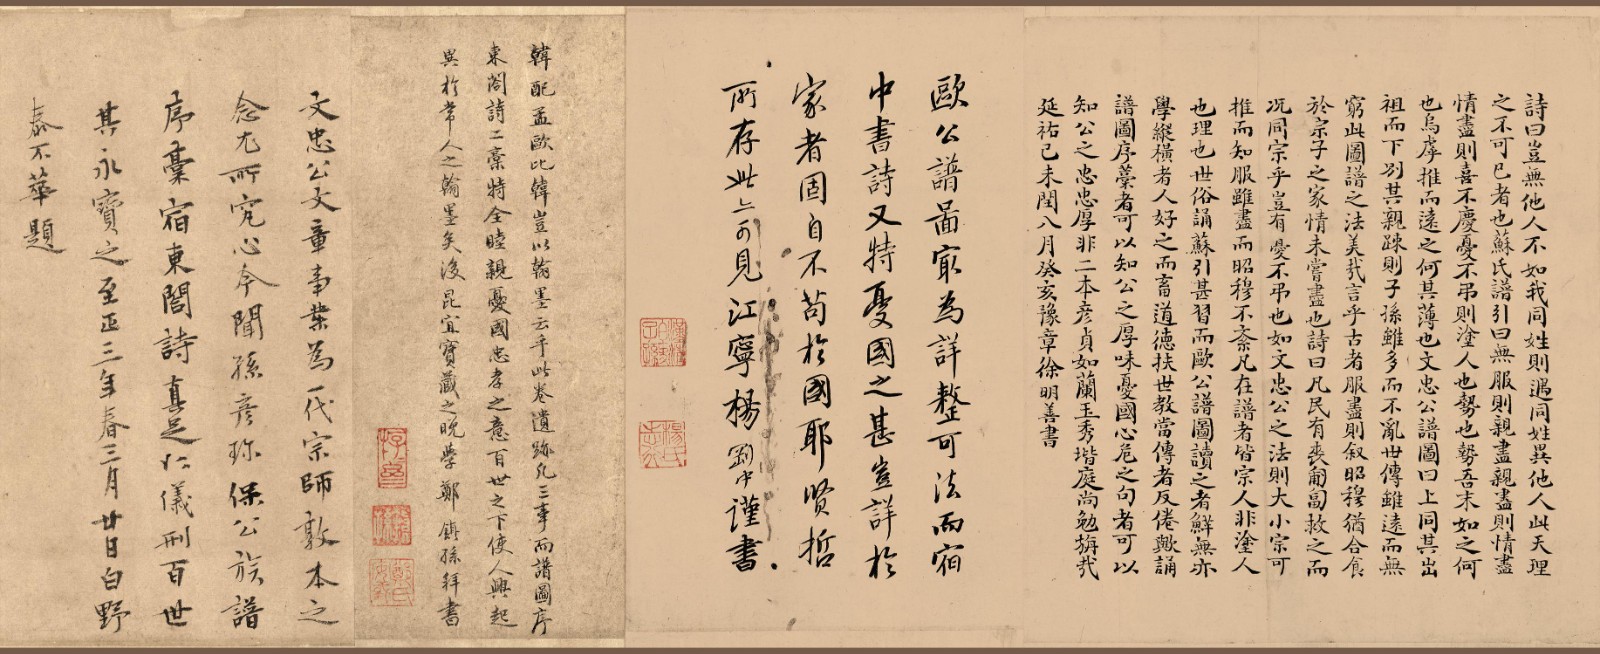 詩曰豈無他人不如我同姓則遇同姓異他人此天理
之不可已者也蘇氏譜引曰無服則親盡親盡則情盡
情盡則喜不慶憂不吊則塗人也勢也勢吾未如之何
也烏虖推而遠之何其薄也文忠公譜圖曰上同其出
祖而下別其親踈則子孫雖多而不亂世傳雖遠而無
窮此圖譜之法美哉言乎古者服盡則叙昭穆猶合食
於宗子之家情未嘗盡也詩曰凡民有喪匍匐救之而
况同宗乎豈有憂不吊也如文忠公之法則大小宗可
推而知服雖盡而昭穆不紊凡在譜者皆宗人非塗人
也理也世俗誦蘇引甚習而歐公譜圖讀之者鮮無亦
學縱橫者人好之而畜道德扶世教當傳者反倦歟誦
譜圖序藁者可以知公之厚味憂國心危之句者可以
知公之忠忠厚非二本彦貞如蘭玉秀堦庭尚勉旃哉
延祐己未閏八月癸亥豫章徐明善書
歐公譜啚冣為詳整可法而宿
中書詩又特憂國之甚豈詳於
家者固自不苟於國耶賢哲
所存此亦可見江寧楊剛中謹書
韓配孟歐比韓豈以翰墨云乎此卷遺跡凡三事而譜圖序
東閤詩二藁特全睦親憂國忠孝之意百世之下使人興起
異於常人之翰墨矣後昆宜寶藏之晩學鄭鎛孫拜書
文忠公文章事業為一代宗師敦本之
念尤所究心今聞孫彦珎保公族譜
序藁宿東閤詩真足以儀刑百世
其永寶之至正三年春三月廿日白野
泰不華題